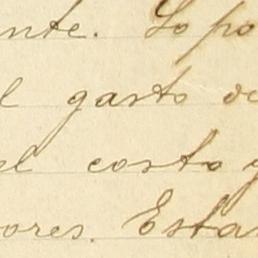 nte. Lo po
l gasto de
el costo y
ores. Esta